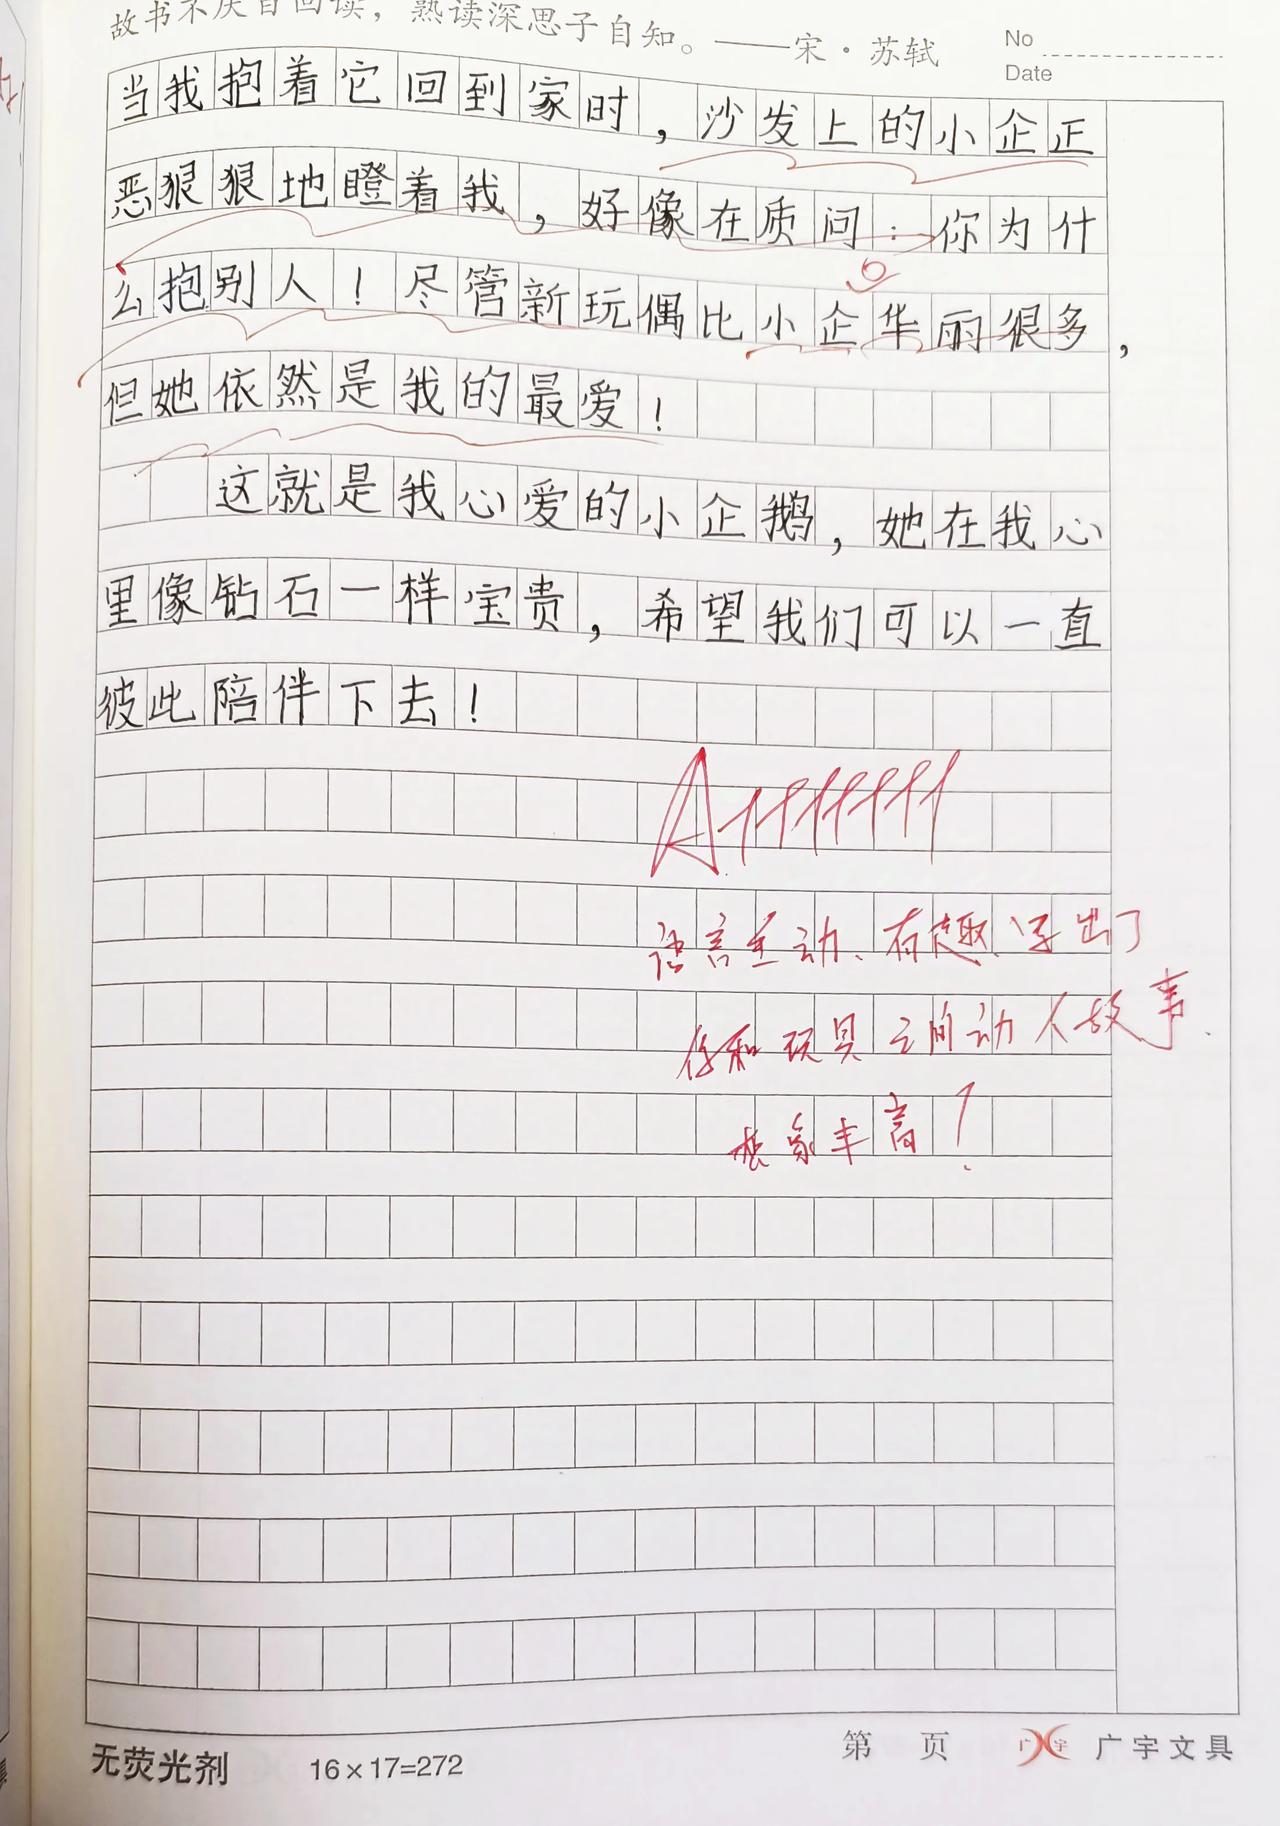 故书不厌百回读，熟读深思子自知。——宋·苏轼
No
Date
当我抱着它回到家时，沙发上的小企正
恶狠狠地瞪着我，好像在质问：你为什
么抱别人！尽管新玩偶比小企华丽很多，
但她依然是我的最爱！
这就是我心爱的小企鹅，她在我心
里像钻石一样宝贵，希望我们可以一直
彼此陪伴下去！
A+++++++
语言生动、有趣、写出了
你和玩具之间动人故事.
想象丰富！
无荧光剂
16×17=272
第 页
广宇
广宇文具